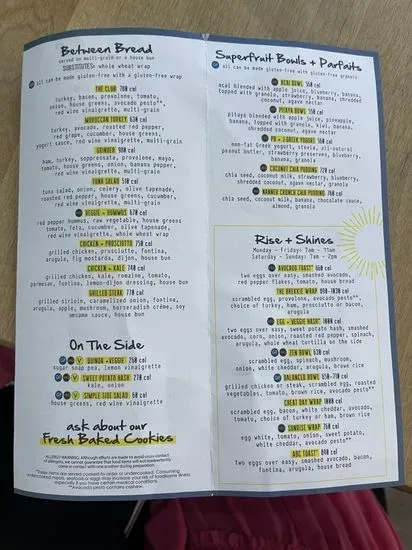 Between Bread
served on multi-grain or a house bun
SUBSTITUTES: whole wheat wrap
all can be made gluten-free with a gluten-free wrap
THE CLUB 780 cal
turkey, bacon, provolone, tomato,
onion, house greens, avocado pesto**,
red wine vinaigrette, multi-grain
MOROCCAN TURKEY 630 cal
turkey, avocado, roasted red pepper,
caper, cucumber, house greens,
yogurt sauce, red wine vinaigrette, multi-grain
GRINDER 980 cal
ham, turkey, soppressata, provolone, mayo,
tomato, house greens, onion, banana pepper,
red wine vinaigrette, multi-grain
TUNA SALAD 510 cal
tuna salad, onion, celery, olive tapenade,
roasted red pepper, house greens, cucumber,
red wine vinaigrette, multi-grain
VEGGIE + HUMMUS 670 cal
red pepper hummus, raw vegetable, house greens
tomato, feta, cucumber, olive tapenade,
red wine vinaigrette, whole wheat wrap
CHICKEN + PROSCIUTTO 750 cal
grilled chicken, prosciutto, fontina,
arugula, fig mostarda, dijon, house bun
CHICKEN + KALE 740 cal
grilled chicken, kale, romaine, tomato,
parmesan, fontina, lemon-dijon dressing, house bun
GRILLED STEAK 770 cal
grilled sirloin, caramelized onion, fontina,
arugula, apple, mushroom, horseradish crème, soy
sesame sauce, house bun
On The Side
QUINOA + VEGGIE* 260 cal
sugar snap pea, lemon vinaigrette
SWEET POTATO HASH* 270 cal
kale, onion
SIMPLE SIDE SALAD 60 cal
house greens, red wine vinaigrette
ask about our
Fresh Baked Cookies
ALLERGY WARNING: Although efforts are made to avoid cross-contact
of allergens, we cannot guarantee that food items will not inadvertently
come in contact with one another during preparation.
*These items are served cooked-to-order or undercooked. Consuming
undercooked meats, seafood or eggs may increase your risk of foodborne illness,
especially if you have certain medical conditions.
**Avocado pesto contains cashew.
Superfruit Bowls + Parfaits
all can be made gluten-free with gluten-free granola
ACAI BOWL 560 cal
acai blended with apple juice, blueberry, banana,
topped with granola, strawberry, banana, shredded
coconut, agave nectar
PITAYA BOWL 550 cal
pitaya blended with apple juice, pineapple,
banana, topped with granola, kiwi, banana,
shredded coconut, agave nectar
PB + J GREEK YOGURT 560 cal
non-fat Greek yogurt, stevia, all-natural
peanut butter, strawberry preserves, blueberry,
banana, granola
COCONUT CHIA PUDDING 720 cal
chia seed, coconut milk, strawberry, blueberry,
shredded coconut, agave nectar, granola
NANNER CRUNCH CHIA PUDDING 760 cal
chia seed, coconut milk, banana, chocolate sauce,
almond, granola
Rise + Shines
Monday - Friday: 7am - 11am
Saturday - Sunday: 7am - 2pm
AVOCADO TOAST* 660 cal
two eggs over easy, smashed avocado,
red pepper flakes, tomato, house bread
THE BREKKIE WRAP 890-1030 cal
scrambled egg, provolone, avocado pesto**,
choice of turkey, ham, prosciutto or bacon,
arugula
EGG + VEGGIE HASH* 1000 cal
two eggs over easy, sweet potato hash, smashed
avocado, corn, onion, roasted red pepper, spinach,
arugula, whole wheat tortilla on the side
ZEN BOWL 630 cal
scrambled egg, spinach, mushroom,
onion, white cheddar, arugula, brown rice
BALANCED BOWL 650-710 cal
grilled chicken or steak, scrambled egg, roasted
vegetables, tomato, brown rice, avocado pesto**
CHEAT DAY WRAP 1000 cal
scrambled egg, bacon, white cheddar, avocado,
tomato, choice of turkey or ham, brown rice
SUNRISE WRAP 750 cal
egg white, tomato, onion, sweet potato,
white cheddar, avocado pesto**
ABC TOAST* 860 cal
two eggs over easy, smashed avocado, bacon,
fontina, arugula, house bread